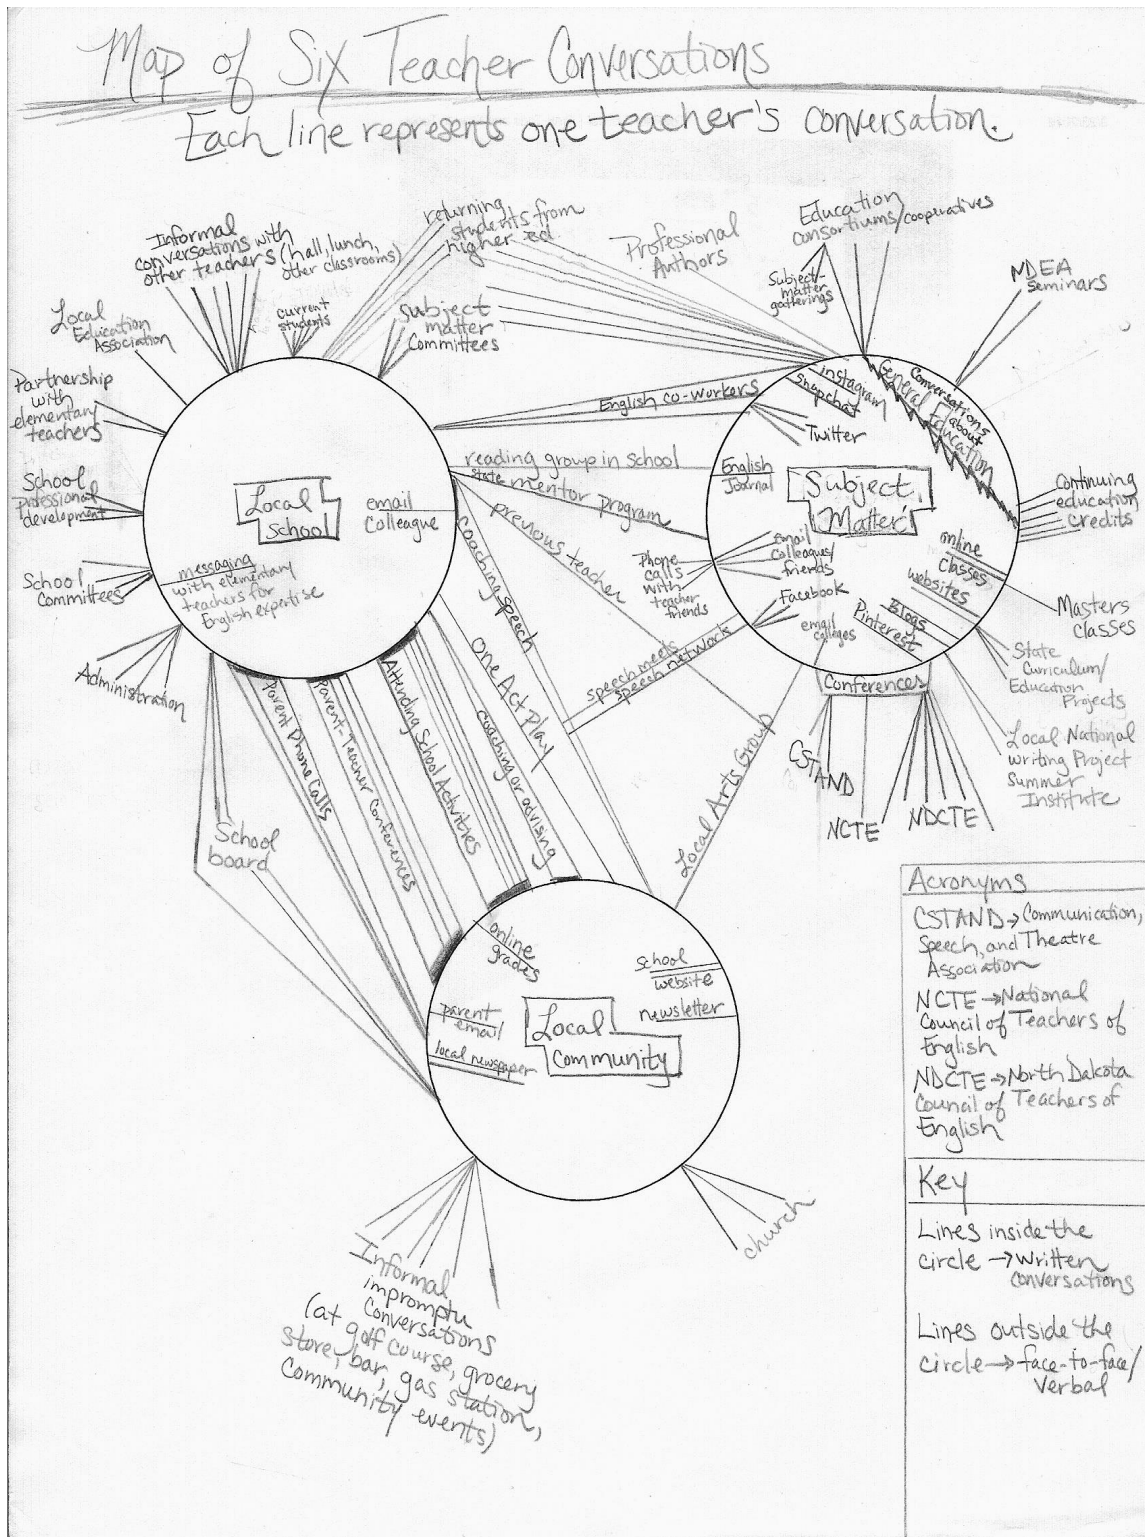 Map of Six Teacher Conversations
Each line represents one teacher's conversation.
Informal
conversations with
other teachers (hall, lunch,
other classrooms)
current
students
returning
students from
higher ed
Subject
matter
Committees
Professional
Authors
Education
consortiums/cooperatives
Subject-
matter
gatherings
NDEA
seminars
Local
Education
Association
Partnership
with
elementary
teachers
School
professional
development
School
Committees
Administration
Local
School
email
Colleague
messaging
with elementary
teachers for
English expertise
English co-workers
reading group in school
state mentor program
previous teacher
coaching speech
One Act Play
coaching or advising
Attending School Activities
Parent-Teacher Conferences
Parent Phone Calls
School
board
speech meets
speech network
Local Arts Group
instagram
Snapchat
Twitter
General Education
Conversations
about
English
Journal
Subject
Matter
Phone
calls
with
teacher
friends
email
colleagues/
friends
Facebook
email
colleges
online
classes
websites
Blogs
Pinterest
Continuing
education
credits
Masters
Classes
State
Curriculum/
Education
Projects
Local National
Writing Project
Summer
Institute
Conferences
CSTAND
NCTE
NDCTE
online
grades
school
website
newsletter
parent
email
local newspaper
Local
Community
church
Informal
impromptu
Conversations
(at golf course, grocery
store, bar, gas station,
Community events)
Acronyms
CSTAND→Communication,
Speech, and Theatre
Association
NCTE→National
Council of Teachers of
English
NDCTE→North Dakota
Council of Teachers of
English
Key
Lines inside the
circle→written
conversations
Lines outside the
circle→face-to-face/
verbal